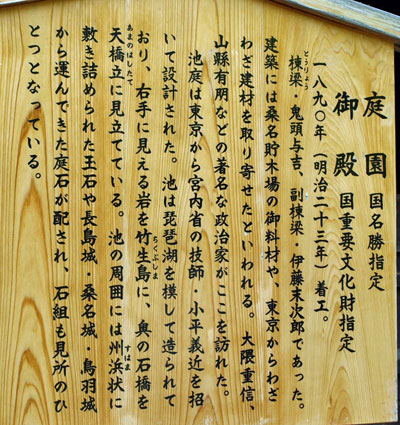 庭園 国名勝指定
御殿 国重要文化財指定
一八九〇年(明治二十三年)着工。
棟梁・鬼頭与吉、副棟梁・伊藤末次郎であった。
とうりょう
建築には桑名貯木場の御料材や、東京からわざ
わざ建材を取り寄せたといわれる。大隈重信、
山縣有朋などの著名な政治家がここを訪れた。
池庭は東京から宮内省の技師・小平義近を招
いて設計された。池は琵琶湖を模して造られて
おり、右手に見える岩を竹生島に、奥の石橋を
ちくぶしま
天橋立に見立てている。池の周囲には州浜状に
あまのはしたて
すはま
敷き詰められた玉石や長島城・桑名城 鳥羽城
から運んできた庭石が配され、石組も見所のひ
とつとなっている。